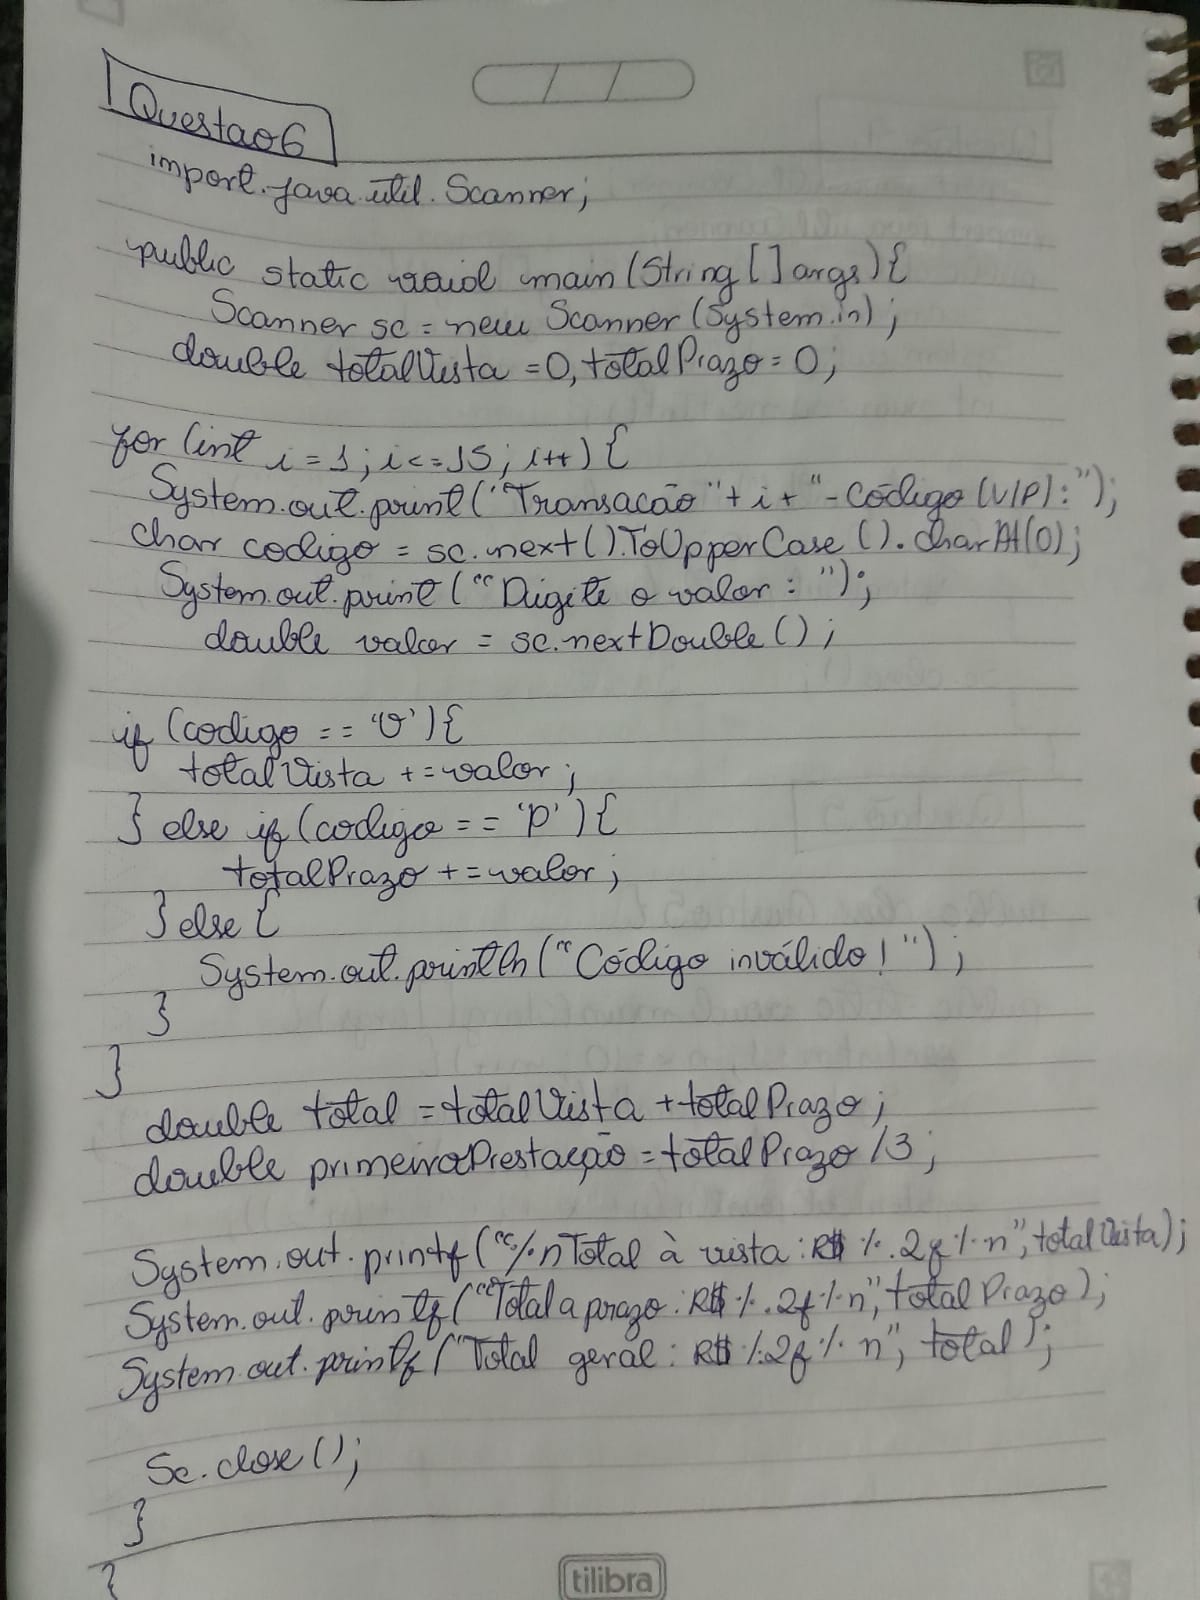 Questao6
import.java.util.Scanner;
public static void main(String[]args){
Scanner sc = new Scanner(System.in);
double totalVista =0, totalPrazo = 0;
for (int i = 1; i<=15; i++){
System.out.print("Transacão"+i+"-Código(V/P):");
char codigo = sc.next().ToUpperCase().charAt(0);
System.out.print("Digite o valor: ");
double valor = sc.nextDouble();
if (codigo == 'V'){
totalVista +=valor;
} else if (codigo == 'P'){
totalPrazo +=valor;
} else {
System.out.println("Código inválido!");
}
}
double total =totalVista +totalPrazo;
double primeiraPrestação =totalPrazo /3;
System.out.printf("%nTotal à vista:R$ %.2f%n",totalVista);
System.out.printf("Total a prazo:R$ %.2f%n",totalPrazo);
System.out.printf("Total geral: R$ %.2f%n", total);
Sc.close();
}
}
tilibra